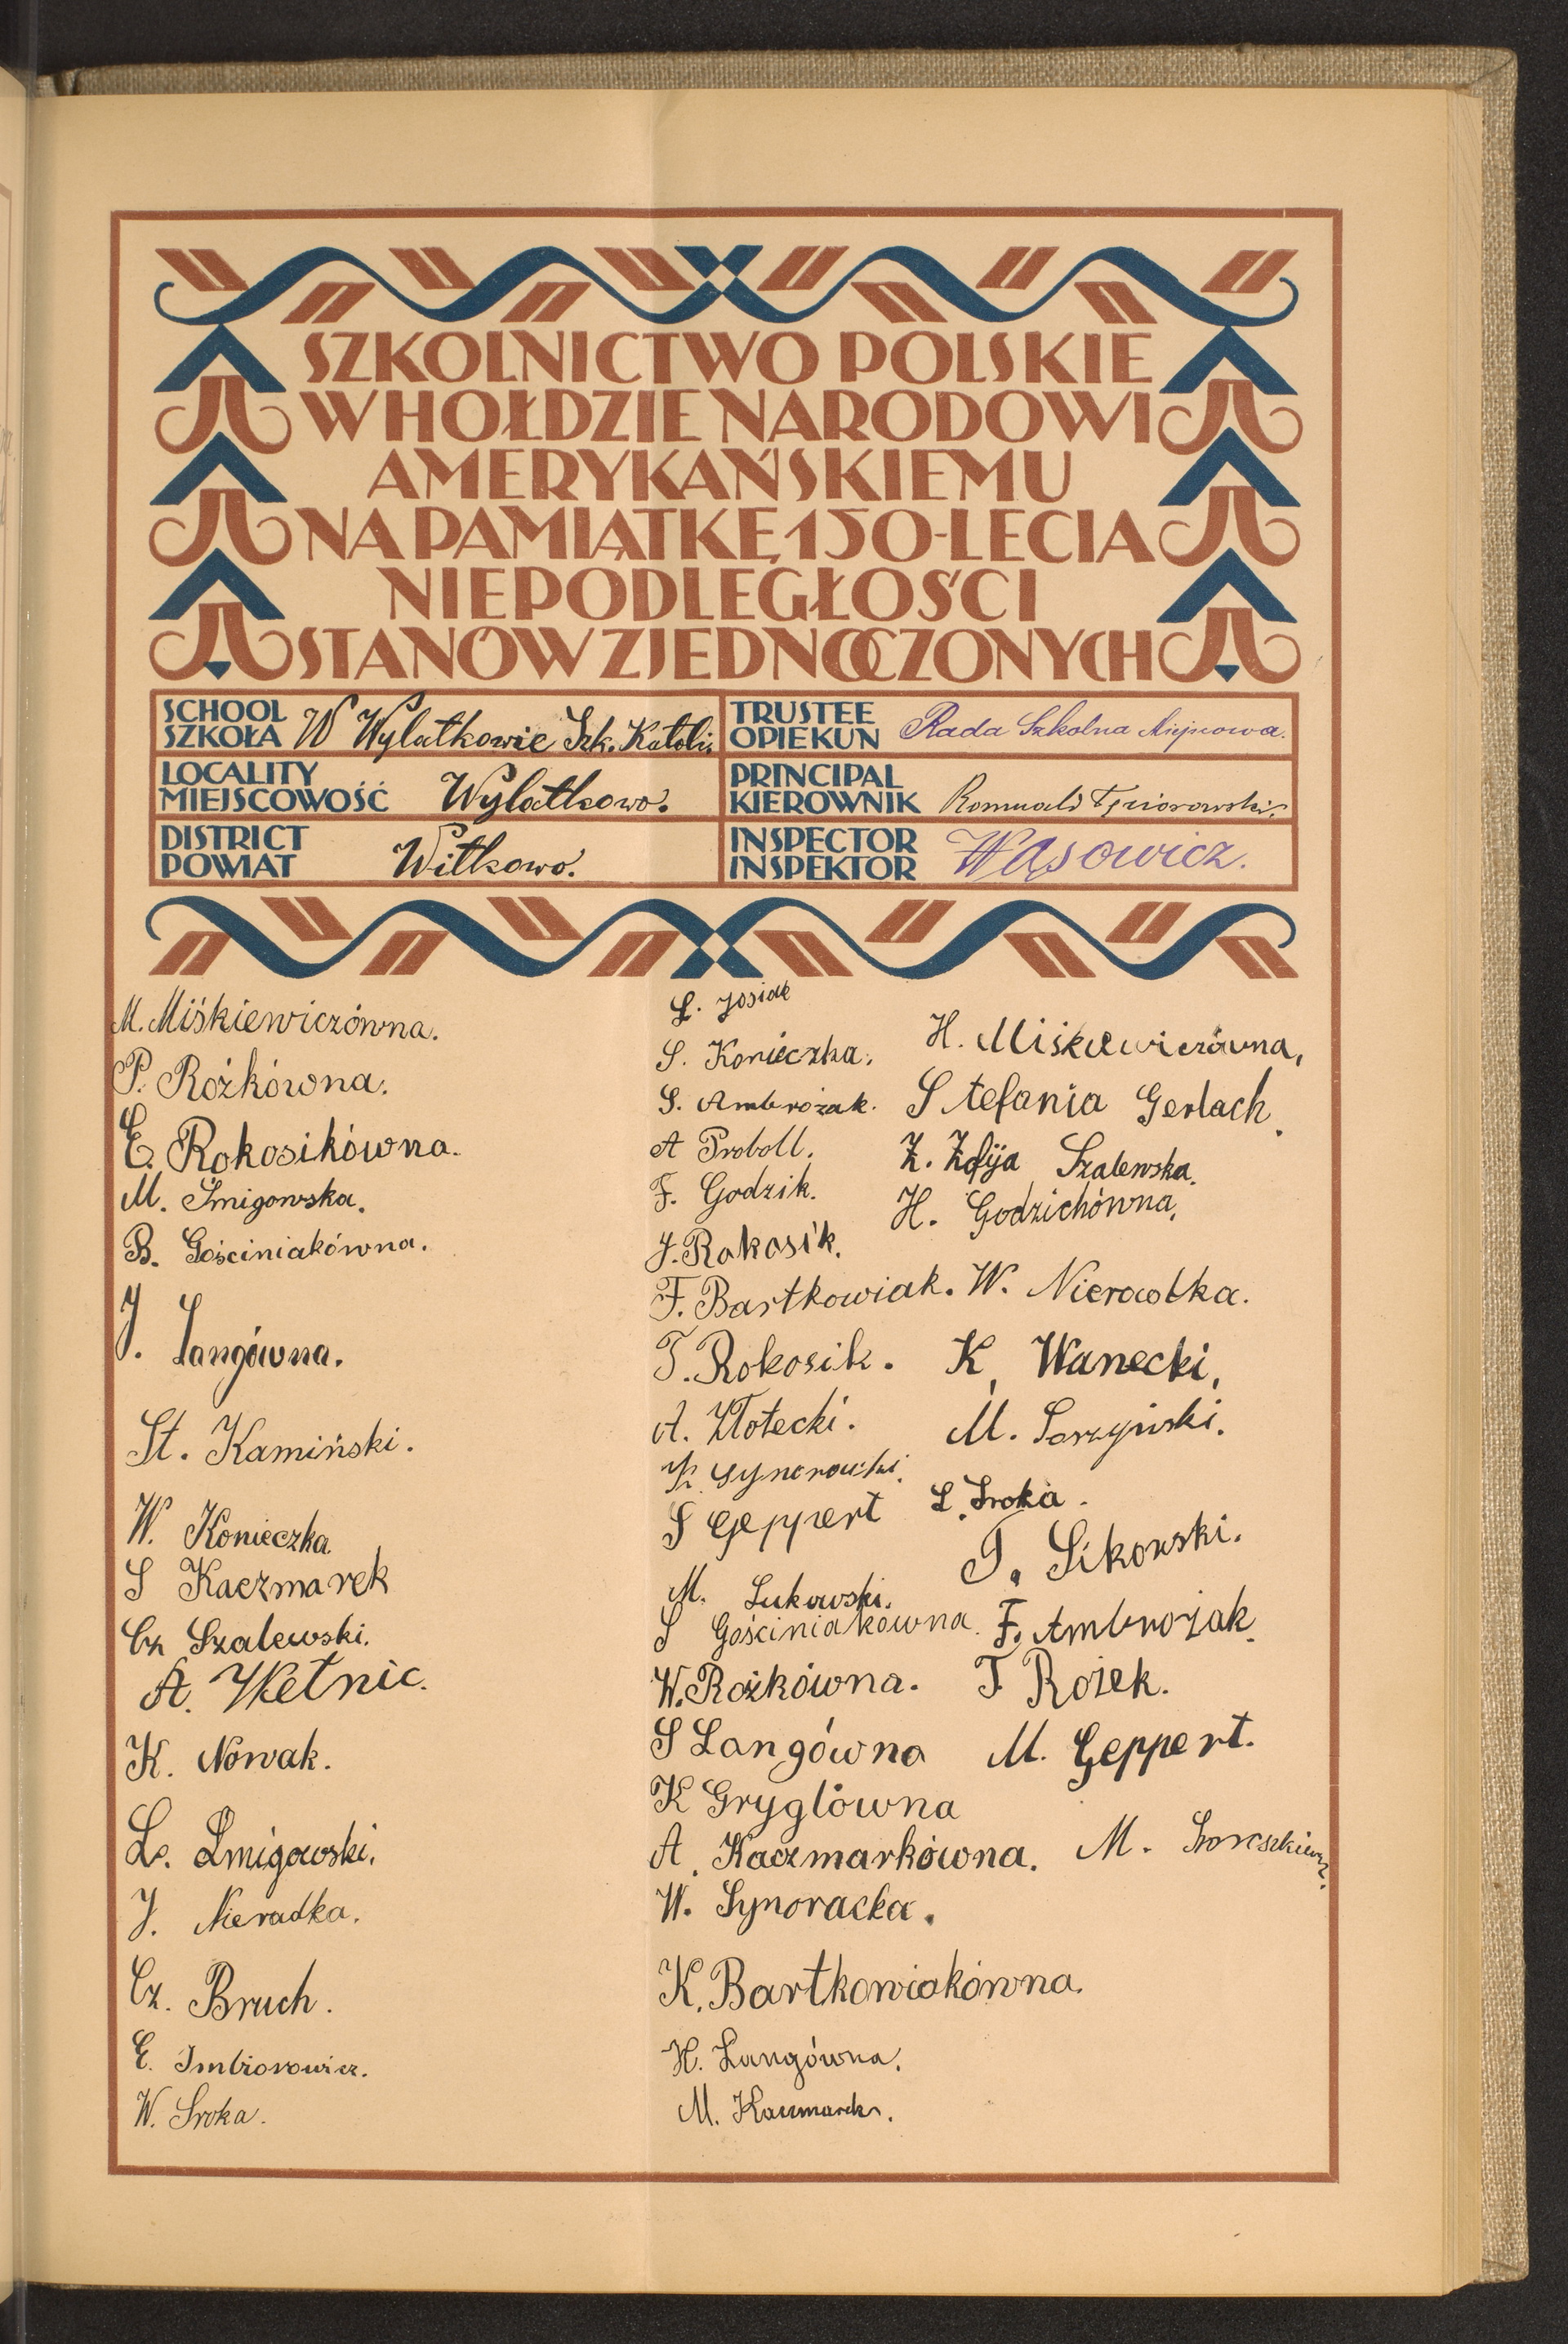 SZKOLNICTWO POLSKIE
W HOŁDZIE NARODOWI
AMERYKAŃSKIEMU
NA PAMIĄTKĘ 150-LECIA
NIEPODLEGŁOŚCI
STANÓW ZJEDNOCZONYCH
SCHOOL
SZKOŁA W Wylatkowie Szk. Katoli.
LOCALITY
MIEJSCOWOŚĆ Wylatkowo.
DISTRICT
POWIAT Witkowo.
TRUSTEE
OPIEKUN Rada Szkolna Miejscowa.
PRINCIPAL
KIEROWNIK Romuald
INSPECTOR
INSPEKTOR Wąsowicz.
M. Miśkiewiczówna.
P. Rożkówna.
E. Rokosikówna.
M. Śmigowska.
B. Gościniakówna.
J. Langówna.
St. Kamiński.
W. Konieczka
S Kaczmarek
Cz Szalewski.
A. Wetnic.
K. Nowak.
L. Śmigowski.
J. Nieradka.
Cz. Bruch.
E. Imbiorowicz.
W. Sroka.
L. Josiak
S. Konieczka.
S. Ambrożak.
A Proboll.
F. Godzik.
J. Rokosik.
F. Bartkowiak.
T. Rokosik.
A. Złotecki.
S Geppert
M. Łukowski.
S Gościniakówna.
W. Rożkówna.
S Langówna
K Gryglówna
A. Kaczmarkówna.
W. Synoracka.
K. Bartkowiakówna.
H. Langówna.
M. Kaczmarek.
H. Miśkiewiczówna,
Stefania Gerlach.
Z. Zofija Szalewska.
H. Godzichówna,
W. Nieradka.
K. Wanecki,
M.
L. Sroka.
T. Sikorski.
F. Ambrożak.
T. Rożek.
M. Geppert.
M.